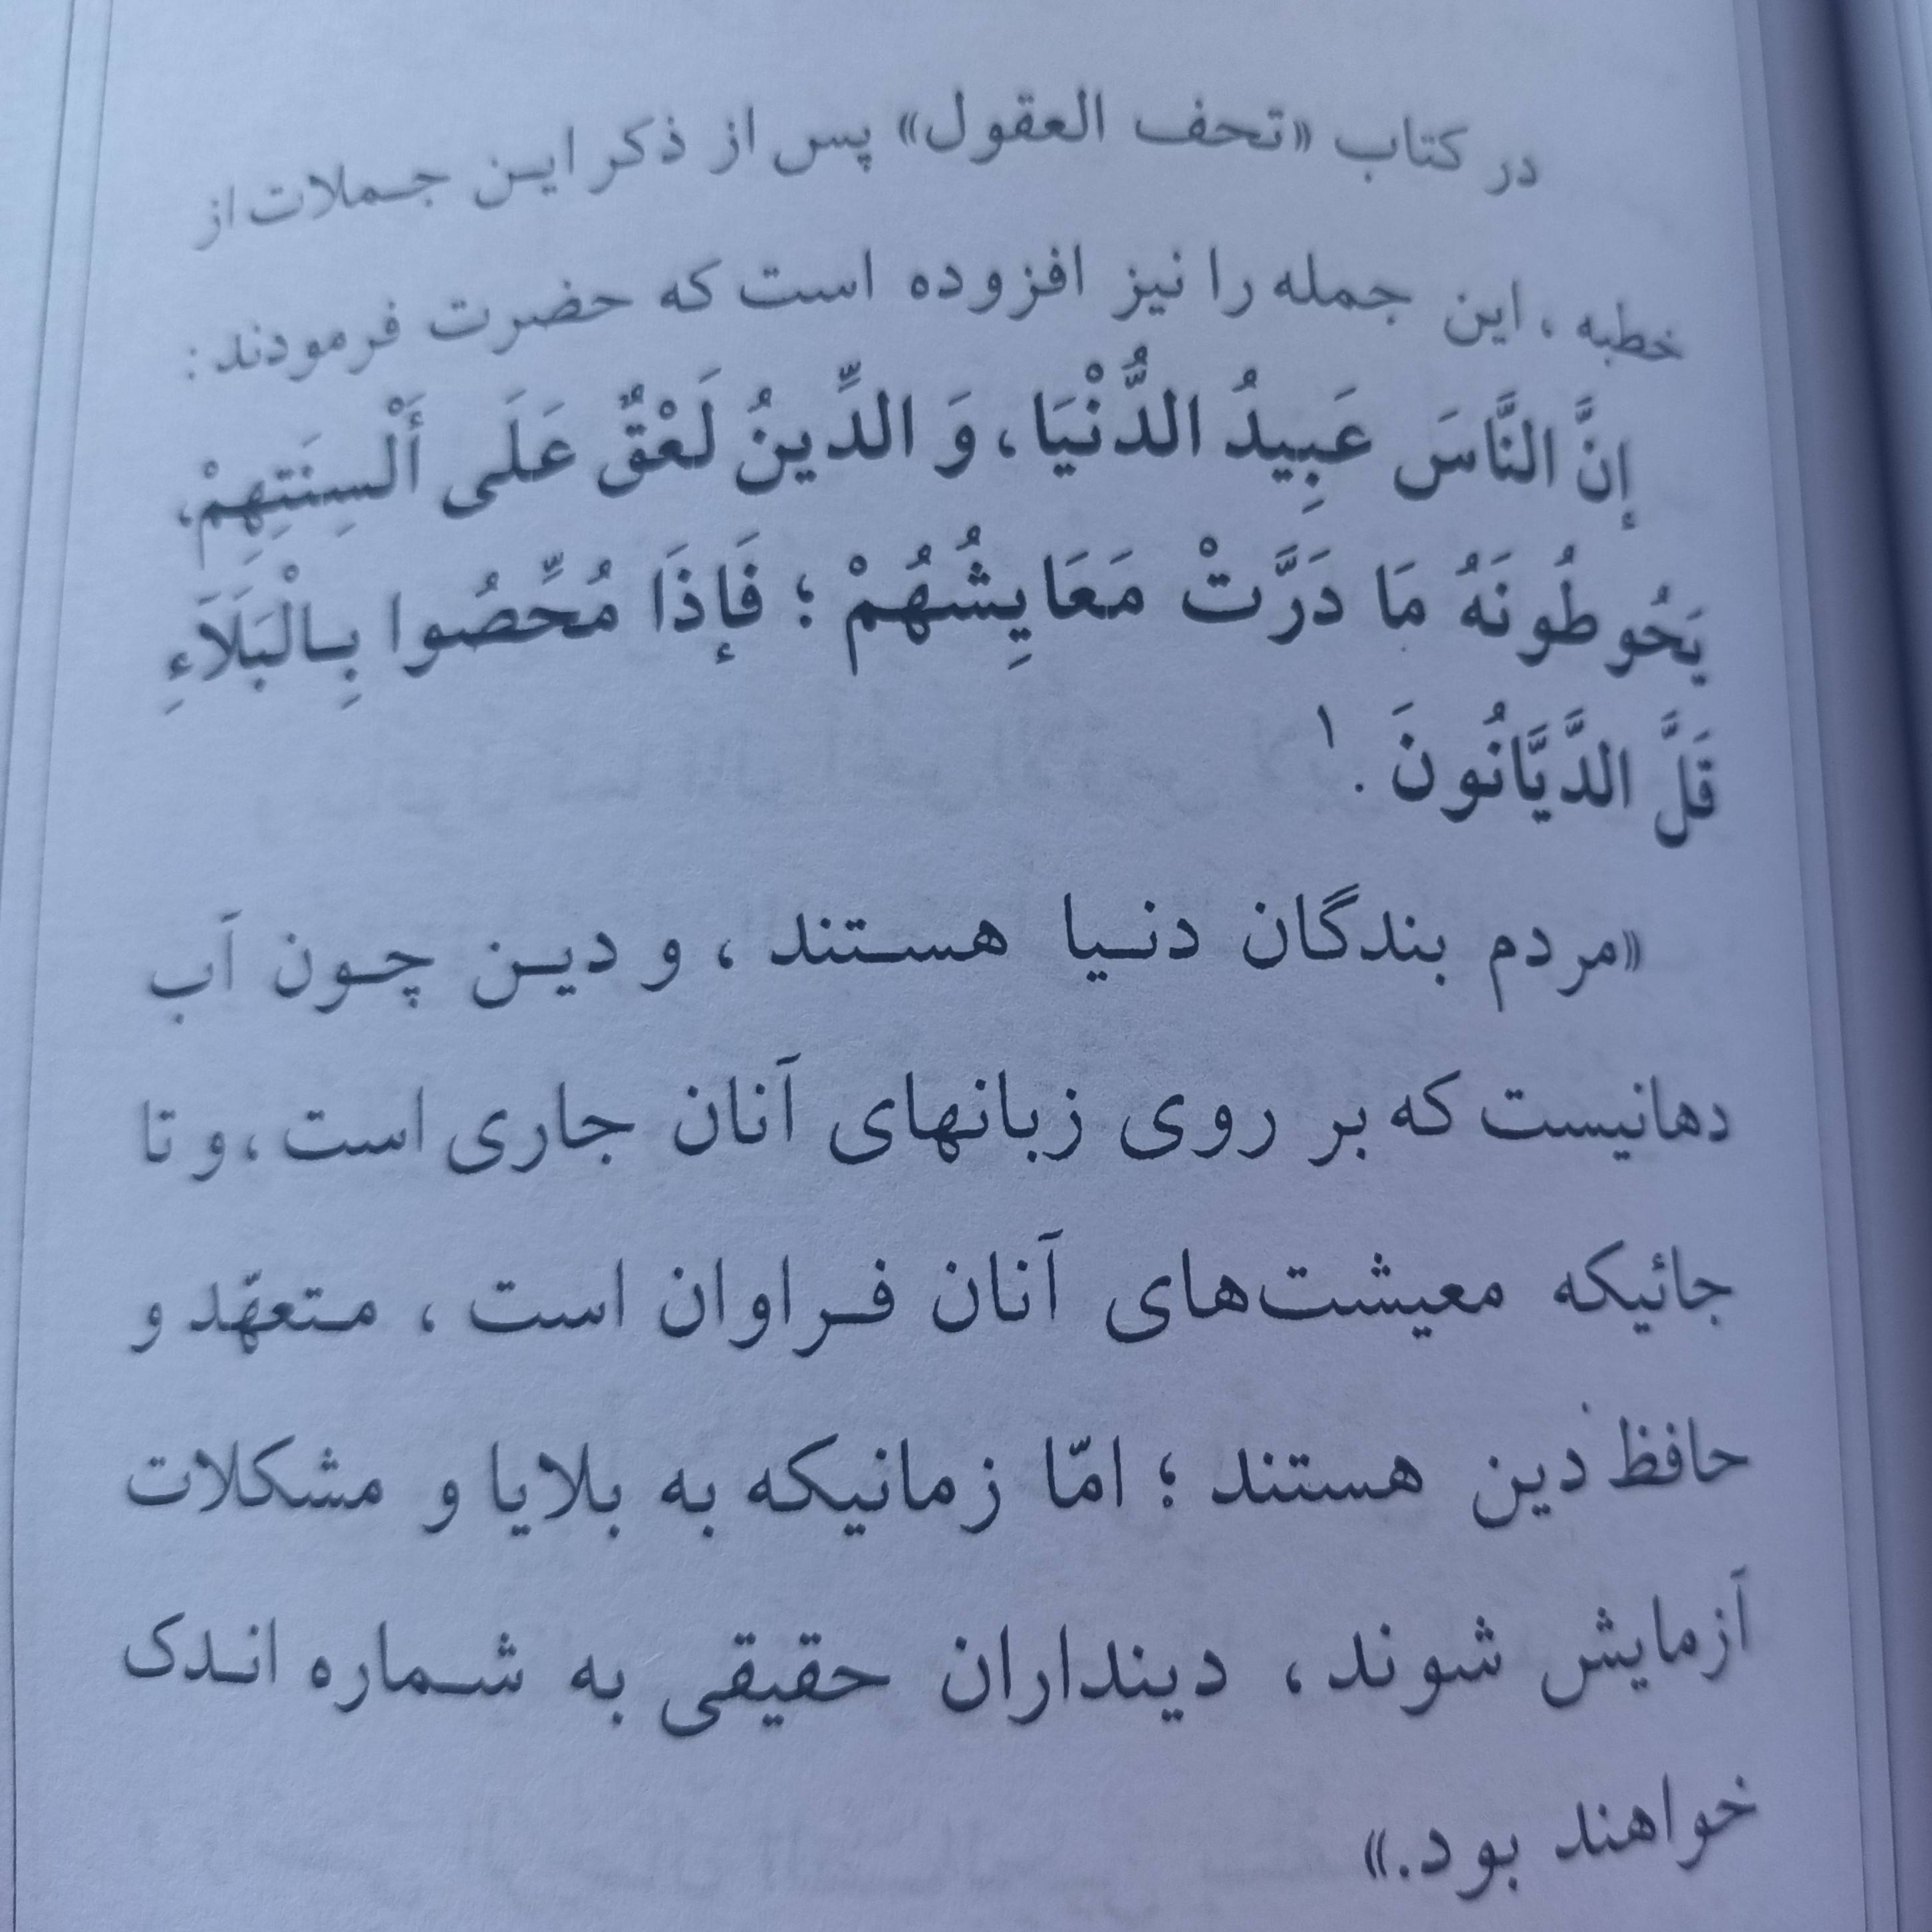 در کتاب «تحف العقول» پس از ذکر این جملات از
خطبه ، این جمله را نیز افزوده است که حضرت فرمودند :
إِنَّ النَّاسَ عَبِیدُ الدُّنْیَا، وَ الدِّینُ لَعْقٌ عَلَی أَلْسِنَتِهِمْ،
یَحُوطُونَهُ مَا دَرَّتْ مَعَایِشُهُمْ ؛ فَإِذَا مُحِّصُوا بِالْبَلَاءِ
قَلَّ الدَّیَّانُونَ .۱
«مردم بندگان دنیا هستند ، و دین چون آب
دهانیست که بر روی زبانهای آنان جاری است ، و تا
جائیکه معیشت‌های آنان فراوان است ، متعهّد و
حافظ دین هستند ؛ امّا زمانیکه به بلایا و مشکلات
آزمایش شوند ، دینداران حقیقی به شماره اندک
خواهند بود.»